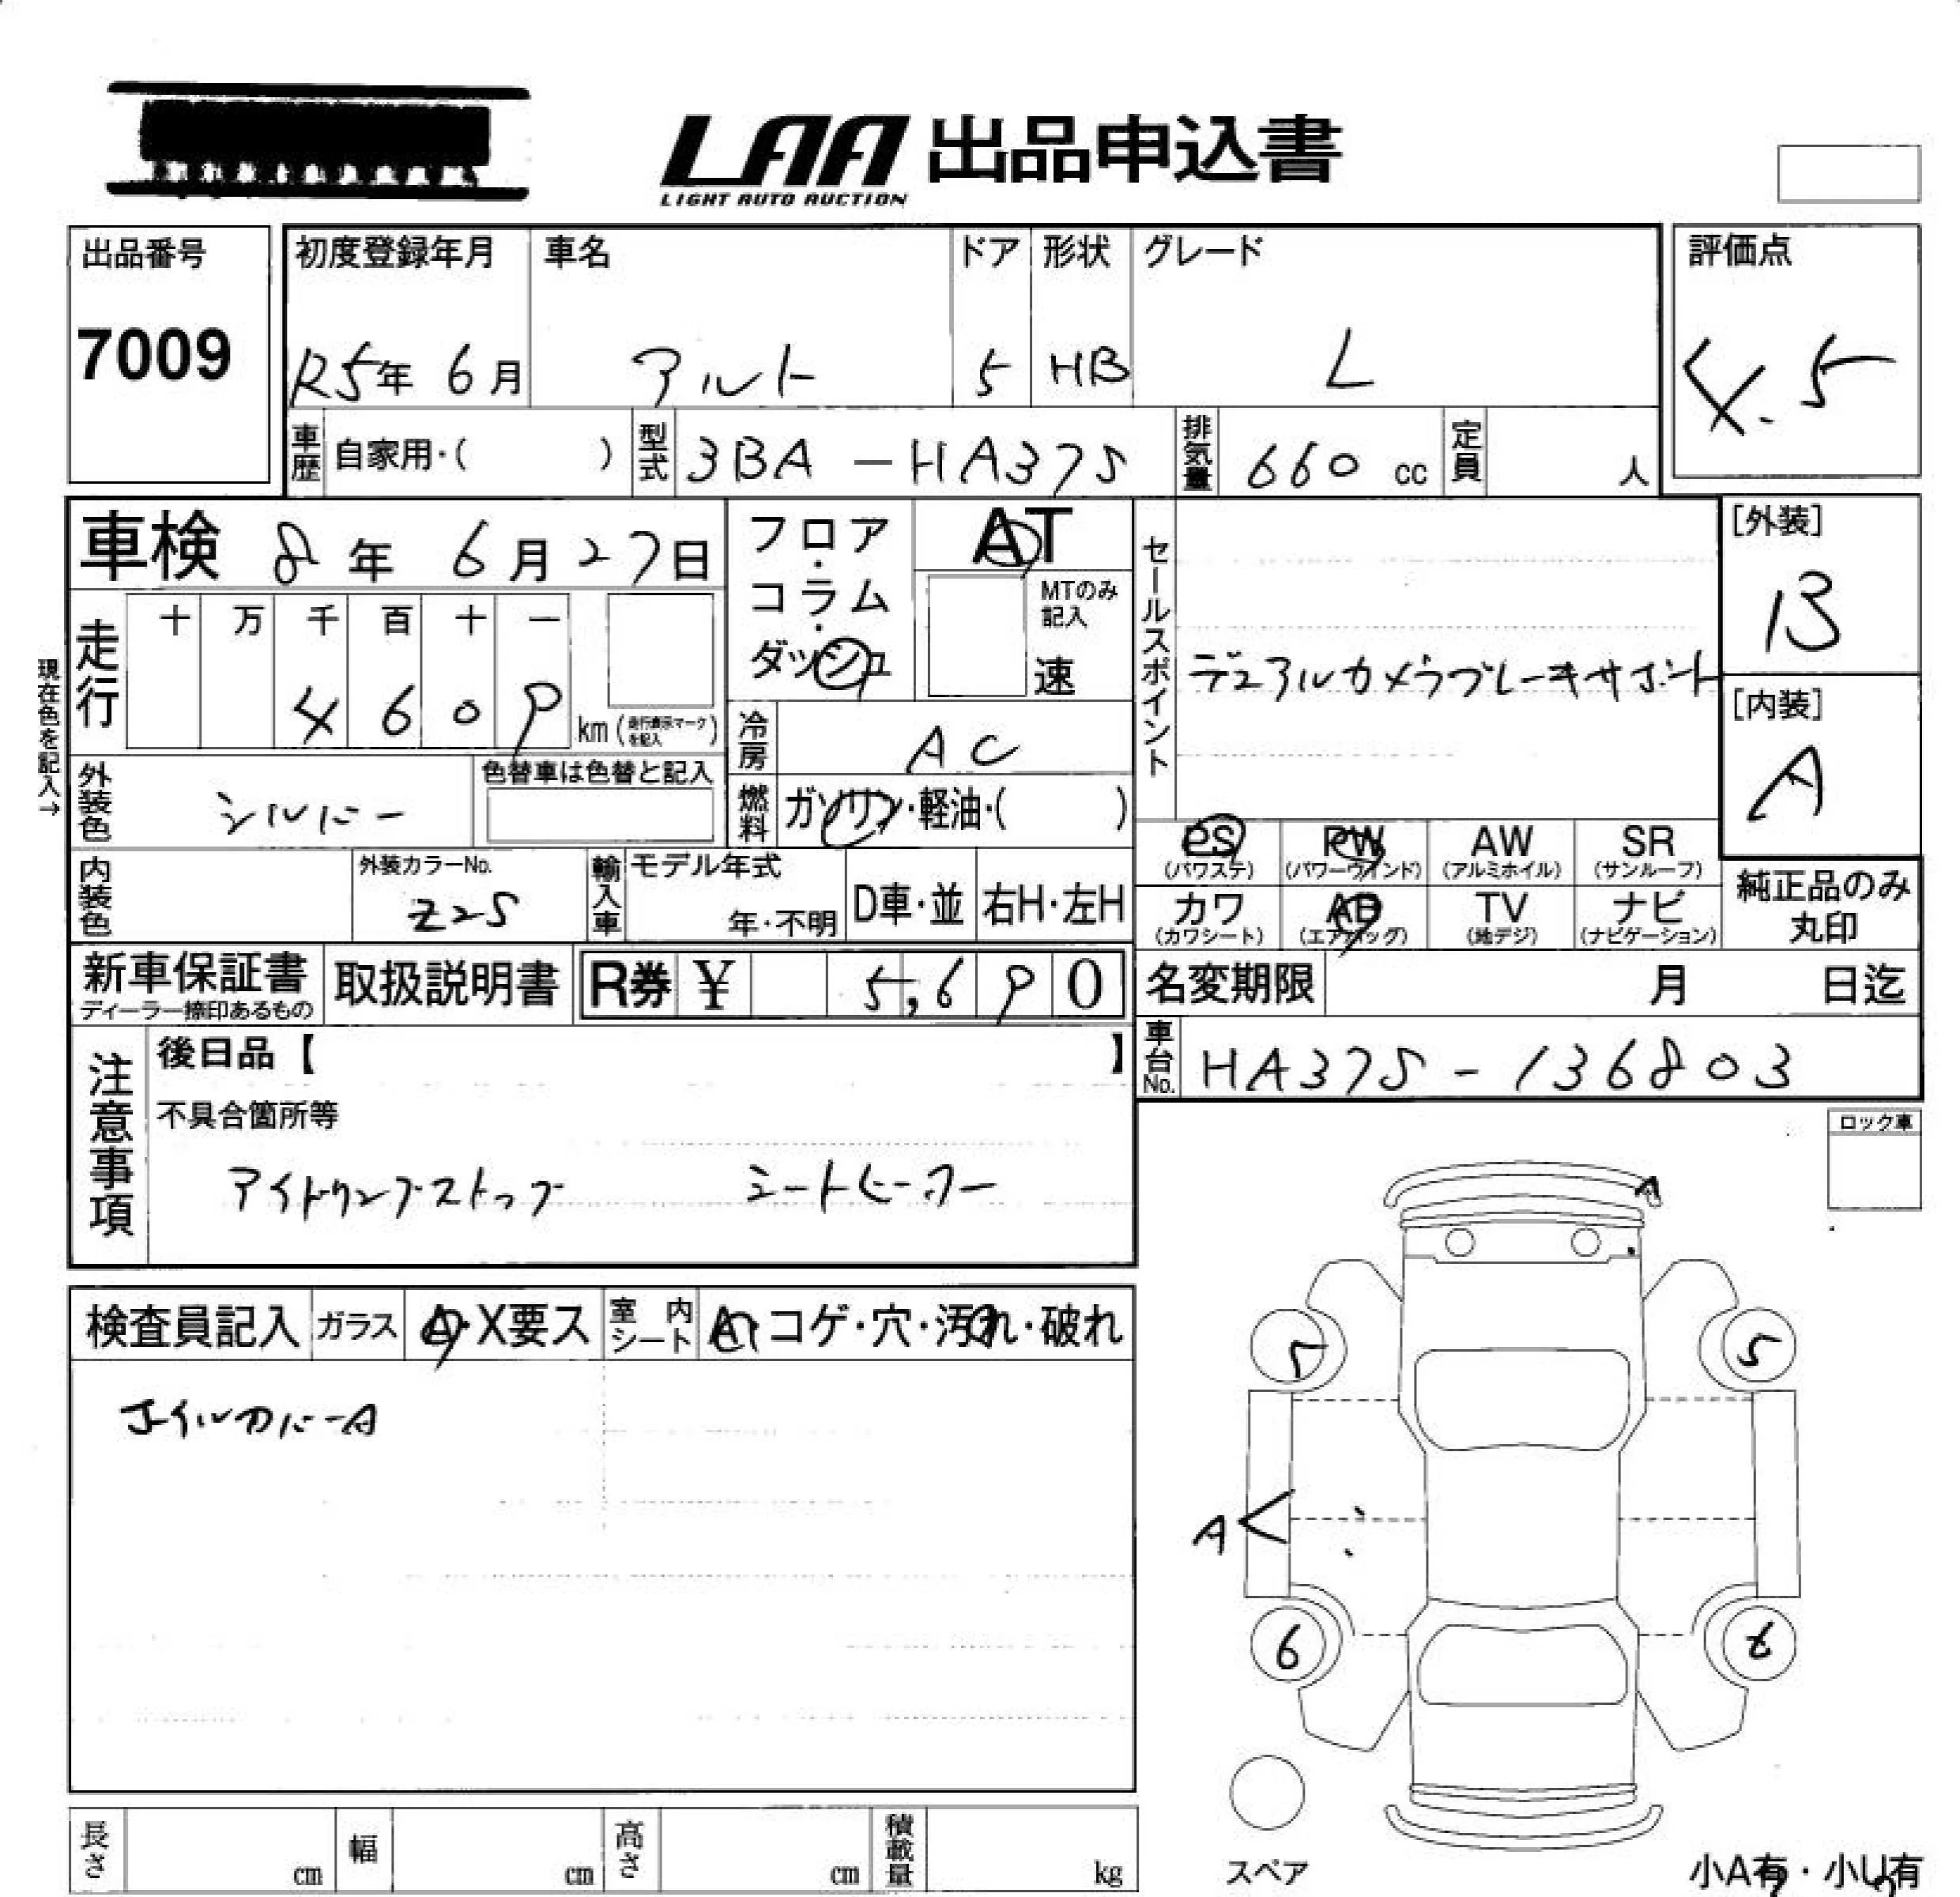 LAA 出品申込書
LIGHT AUTO AUCTION
出品番号
7009
初度登録年月
R5年 6月
車名
アルト
ドア
5
形状
HB
グレード
L
評価点
4.5
車歴 自家用・( )
型式 3BA-HA37S
排気量 660 cc
定員 人
車検 8年 6月 27日
フロア・コラム・ダッシュ
AT
MTのみ記入
速
セールスポイント
デュアルカメラブレーキサポート
[外装]
B
[内装]
A
現在色を記入→
走行
十 万 千 百 十 一
4 6 0 9 km (走行表示マークを記入)
冷房 AC
燃料 ガソリン・軽油・( )
外装色 シルバー
色替車は色替と記入
内装色
外装カラーNo.
Z2S
輸入車
モデル年式
年・不明
D車・並
右H・左H
PS (パワステ)
PW (パワーウインド)
AW (アルミホイル)
SR (サンルーフ)
カワ (カワシート)
AB (エアバッグ)
TV (地デジ)
ナビ (ナビゲーション)
純正品のみ丸印
新車保証書
ディーラー捺印あるもの
取扱説明書
R券 ¥ 5,690
名変期限 月 日迄
車台No. HA37S-136803
注意事項
後日品【 】
不具合箇所等
アイドリングストップ シートヒーター
ロック車
検査員記入
ガラス A・X要ス
室内シート A・コゲ・穴・汚れ・破れ
ホイルカバーA
A
5 5
A
6 6
スペア
長さ cm 幅 cm 高さ cm 積載量 kg
小A有・小U有